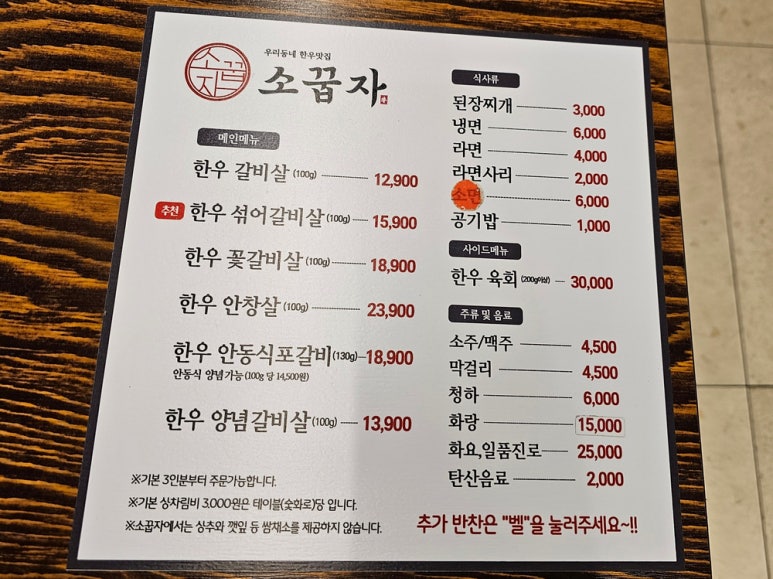 소꿉
자
우리동네 한우맛집
소꿉자
메인메뉴
한우 갈비살 (100g) 12,900
추천 한우 섞어갈비살 (100g) 15,900
한우 꽃갈비살 (100g) 18,900
한우 안창살 (100g) 23,900
한우 안동식포갈비 (130g) 18,900
안동식 양념가능 (100g 당 14,500원)
한우 양념갈비살 (100g) 13,900
※기본 3인분부터 주문가능합니다.
※기본 상차림비 3.000원은 테이블(숯화로)당 입니다.
※소꿉자에서는 상추와 깻잎 등 쌈채소를 제공하지 않습니다.
식사류
된장찌개 3,000
냉면 6,000
라면 4,000
라면사리 2,000
소면 6,000
공기밥 1,000
사이드메뉴
한우 육회 (200g이상) 30,000
주류 및 음료
소주/맥주 4,500
막걸리 4,500
청하 6,000
화랑 15,000
화요,일품진로 25,000
탄산음료 2,000
추가 반찬은 "벨"을 눌러주세요~!!